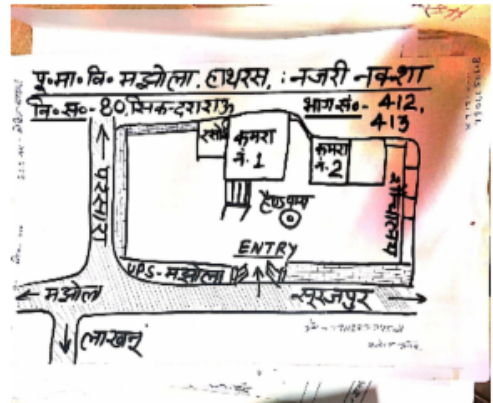 पू॰मा॰वि॰ मझोला, हाथरस, : नजरी नक्शा
वि॰स॰-80, सिकन्दराराऊ भाग सं॰- 412,
413
रसोई
कमरा
नं. 1
कमरा
नं. 2
शौचालय
हैण्डपम्प
परसारा
ENTRY
UPS-मझोला
मझोला
सूरजपुर
लाखनू